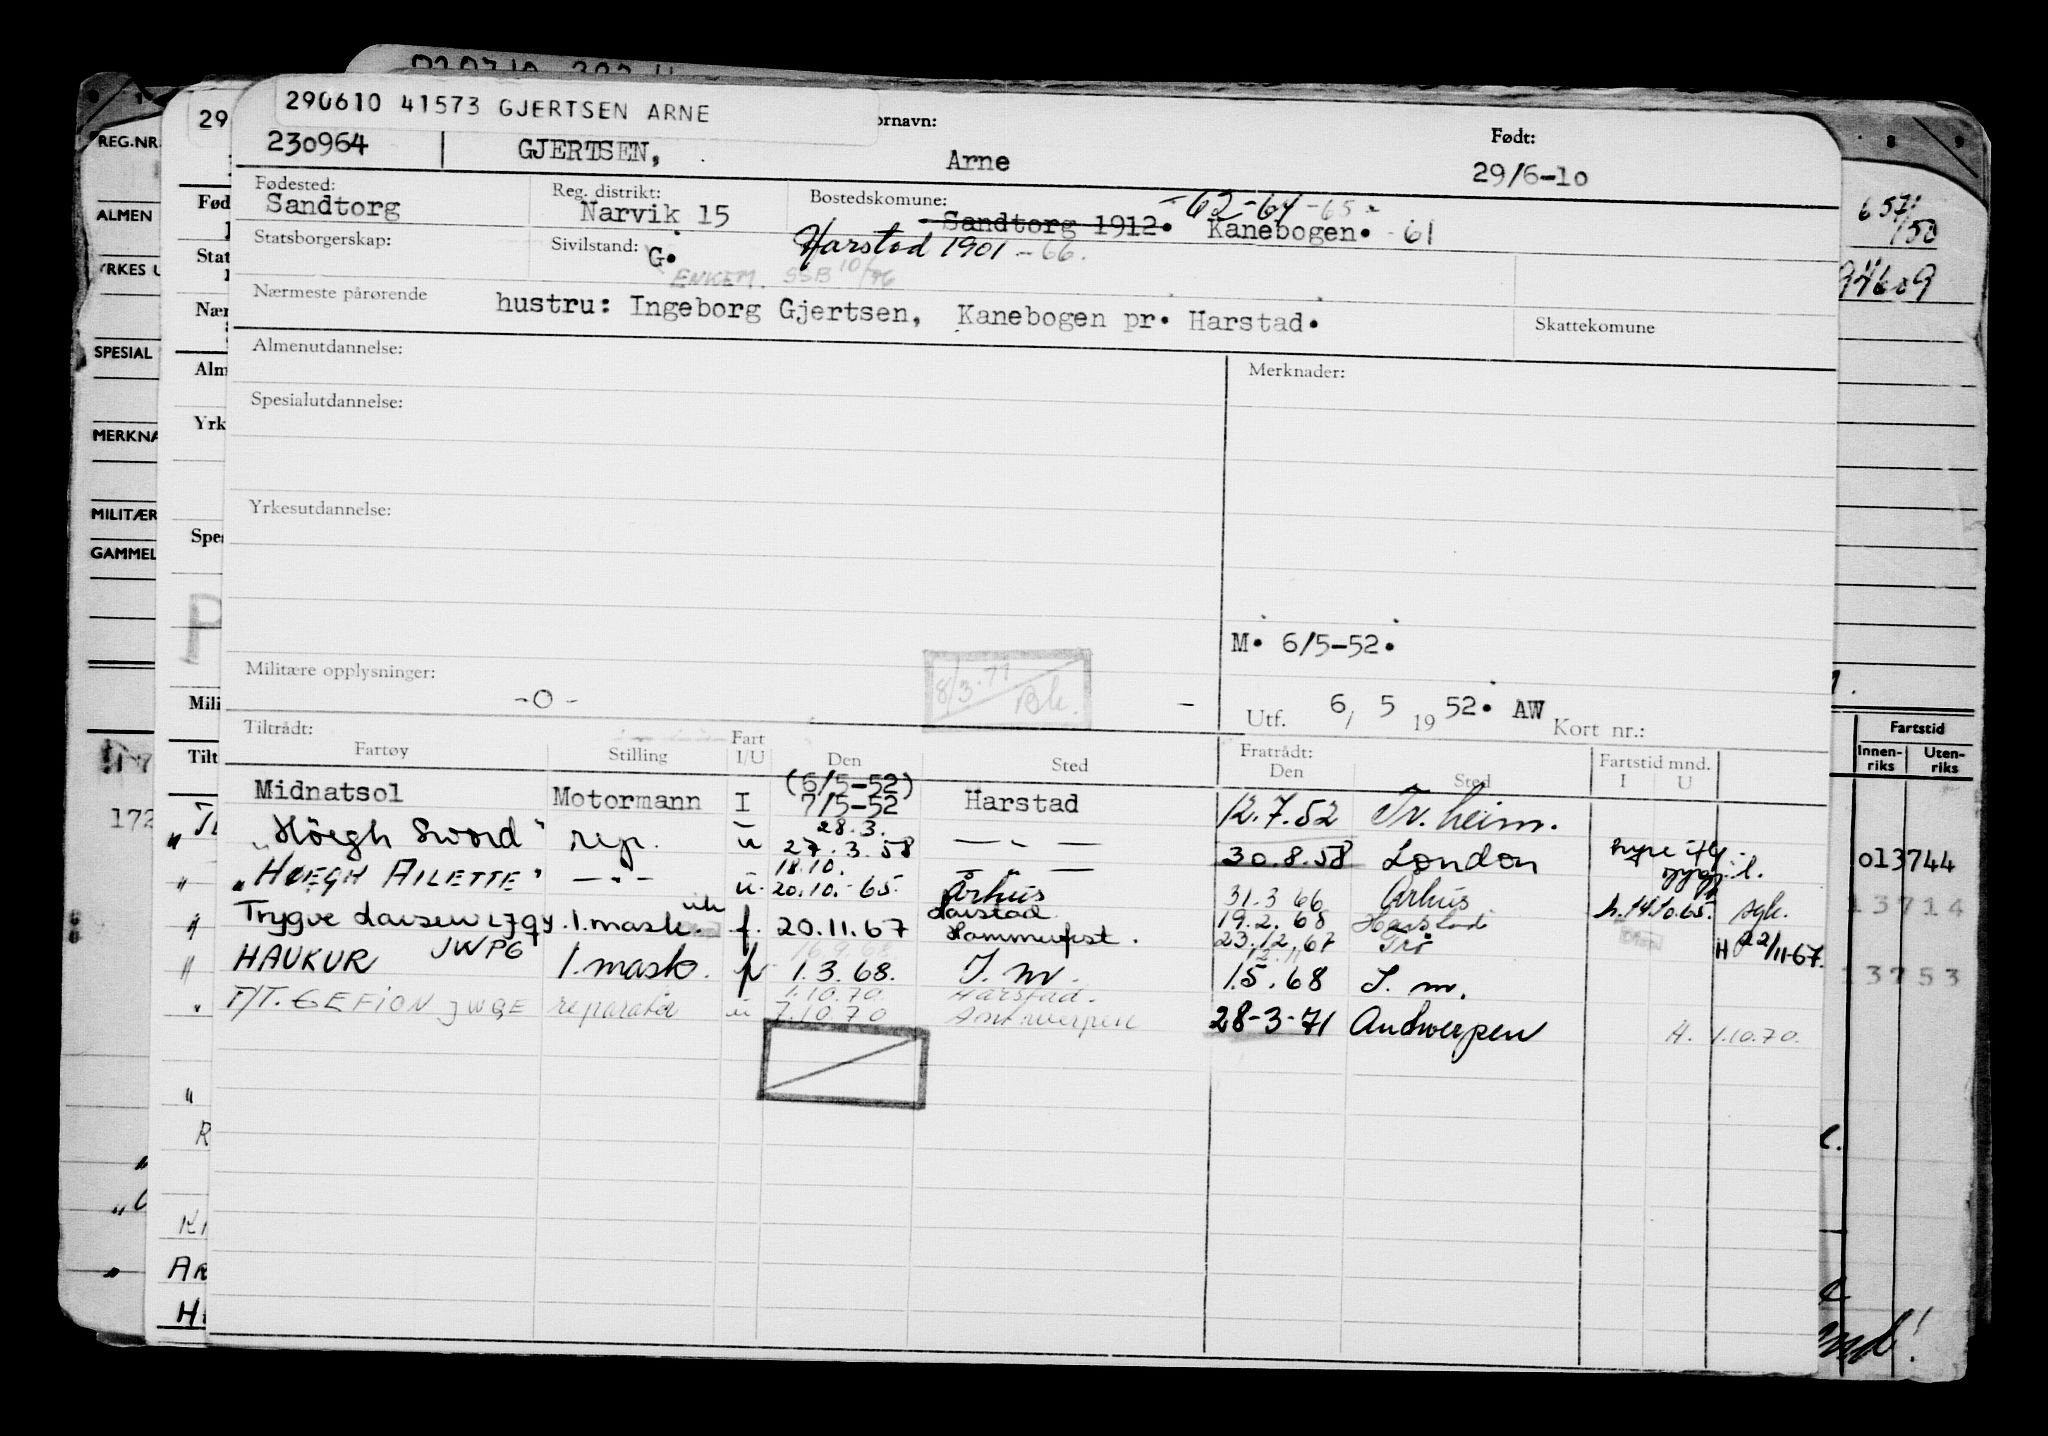 290610 41573 GJERTSEN ARNE
ornavn:
Født:
230964 GJERTSEN, Arne 29/6-10
Fødested: Reg. distrikt: Bostedskomune: -62-64-65-
Sandtorg Narvik 15 Sandtorg 1912. Kanebogen. -61
Statsborgerskap: Sivilstand: G. Harstad 1901 -66.
ENKEM. SSB 10/76
Nærmeste pårørende hustru: Ingeborg Gjertsen, Kanebogen pr. Harstad.
Skattekomune
Almenutdannelse: Merknader:
Spesialutdannelse:
Yrkesutdannelse:
M. 6/5-52.
Militære opplysninger: -0- 8/3.71 Bk. -
Utf. 6/ 5 19 52. AW Kort nr.:
Tiltrådt: Fratrådt:
Fartøy Stilling Fart I/U Den Sted Den Sted Fartstid mnd. I U
(6/5-52)
Midnatsol Motormann I 7/5-52 Harstad 12.7.52 Tr. heim.
28.3.
"Höegh Sword" rep. u 27.3.58 — " — 30.8.58 London
18.10.
"HØEGH AILETTE" — " — u. 20.10.-65. Århus 31.3 66 Århus h. 14/10.65.
Harstad 19.2.68 Harstad
Trygve Larsen LJQY. 1. mask. f. 20.11.67 Hammerfest. 23.12.67 H 22/11-67.
HAUKUR JWPG 1. mask. 1.3.68. 15.68
1.10.70 Harstad.
T/T. GEFION JWQE reparatør u 7.10.70 Antwerpen 28-3-71 Antwerpen H. 1.10.70.
REG.NR.
ALMEN
YRKES U
SPESIAL
MERKNA
MILITÆR
GAMMEL
29
Fød
Stat
Nær
Alm
Yrk
Spe
Mili
Tilt
172
Fartstid
Innen-riks Uten-riks
013744
13714
13753